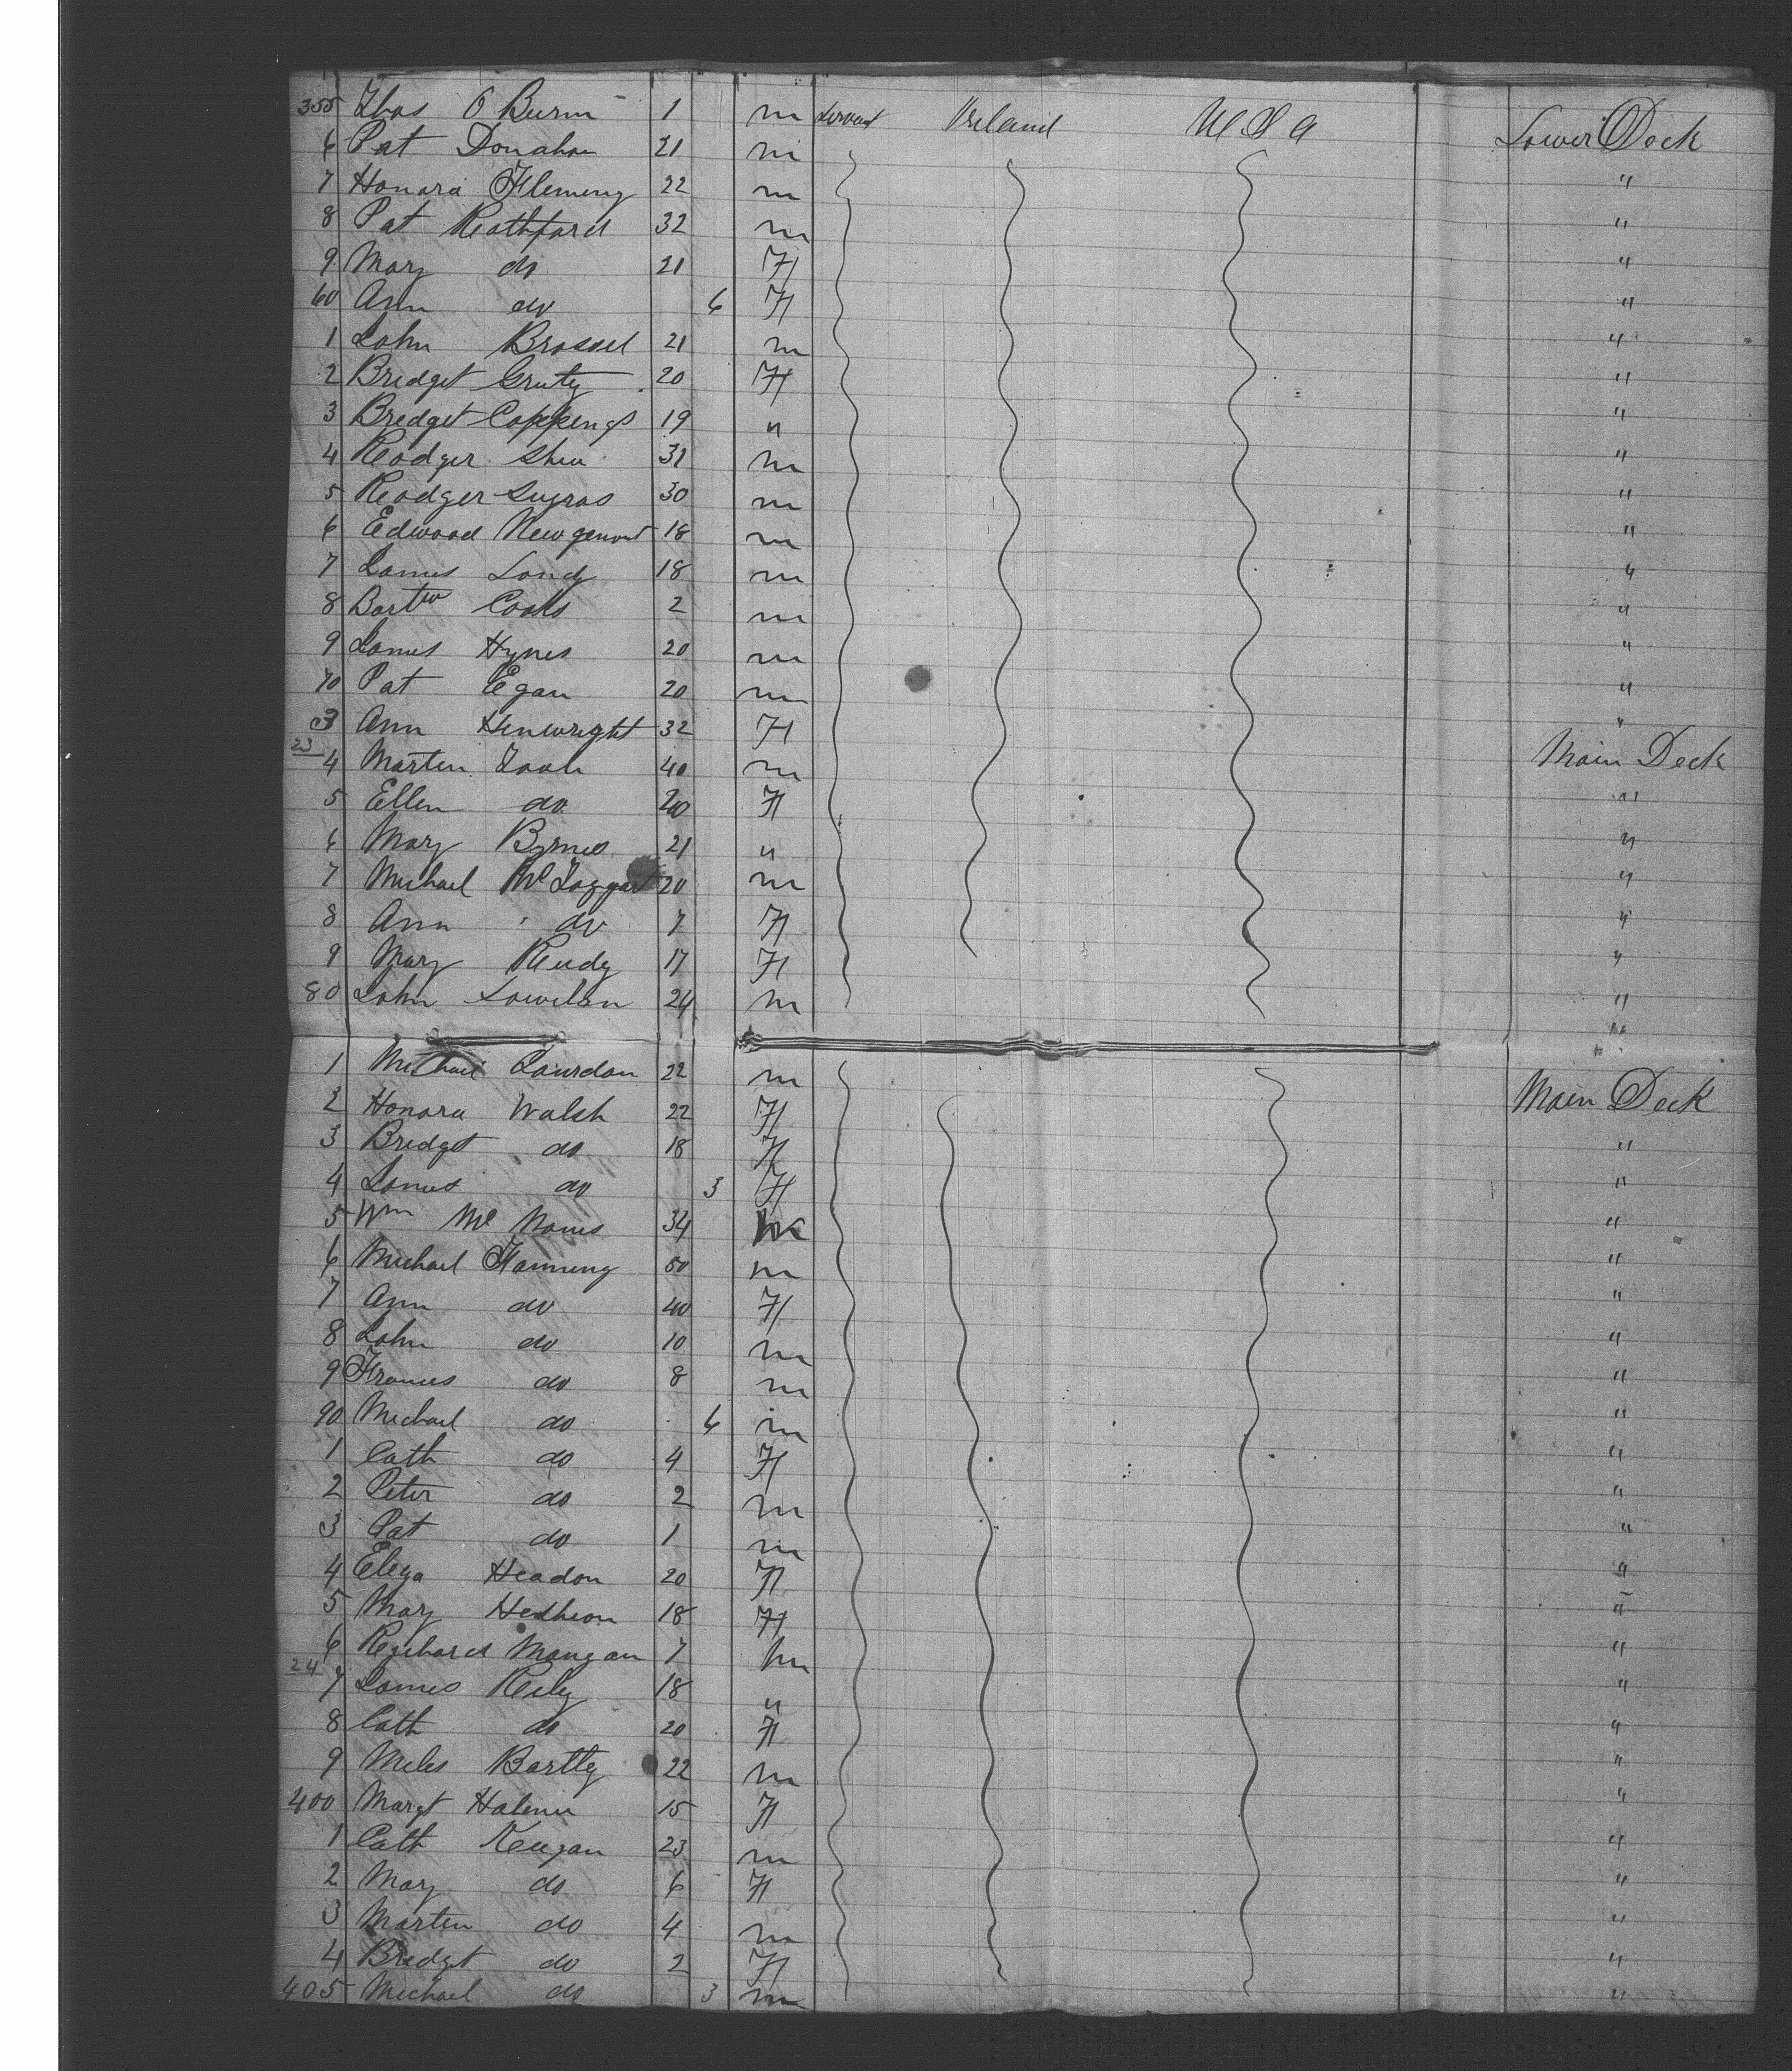 355 Thos O Burn 1 m Servant Ireland U S A Lower Deck
6 Pat Donahoe 21 m
7 Honara Fleming 22 m "
8 Pat Rathford 32 m "
9 Mary do 21 F "
60 Ann do 6 F "
1 John Brossel 21 m "
2 Bridget Gruty 20 F "
3 Bredget Coppengs 19 " "
4 Rodger Shea 31 m "
5 Rodger Sugras 30 m "
6 Edward 18 m "
7 James Londy 18 m "
8 Bartw Cooks 2 m "
9 James Hynes 20 m "
70 Pat Egan 20 m "
3 Ann Henwright 32 F "
23
4 Marten Toole 40 m Main Deck
5 Ellen do 20 F "
6 Mary Byrnes 21 " "
7 Michael McTaggart 20 m "
8 Ann do 7 F "
9 Mary Reudy 17 F "
80 John 24 m "
1 Michael Jourdan 22 m
2 Honora Walsh 22 F Main Deck
3 Bridget do 18 F "
4 James do 3 F "
5 Wm Mc 34 m "
6 Michael Fanning 50 m "
7 Ann do 40 F "
8 John do 10 m "
9 Frances do 8 m "
90 Michael do 6 m "
1 Cath do 4 F "
2 Peter do 2 m "
3 Pat do 1 m "
4 Eleza Headon 20 F "
5 Mary Heshion 18 F "
6 Richard Mangan 7 m "
24
7 James Reily 18 " "
8 Cath do 20 F "
9 Miles Bartly 22 m "
400 Margt 15 F "
1 Cath Keegan 23 m "
2 Mary do 6 F "
3 Marten do 4 m "
4 Bredget do 2 F "
405 Michael do 3 m "